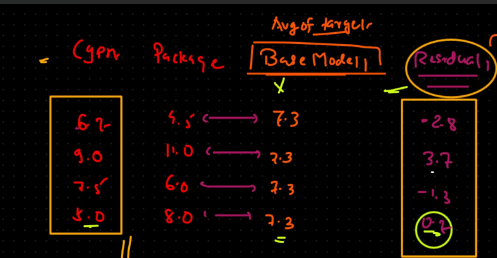 Avg of target
Cgpa Package Base Model1 Residual1
6.2 4.5 7.3 -2.8
9.0 11.0 7.3 3.7
7.5 6.0 7.3 -1.3
8.0 8.0 7.3 0.7